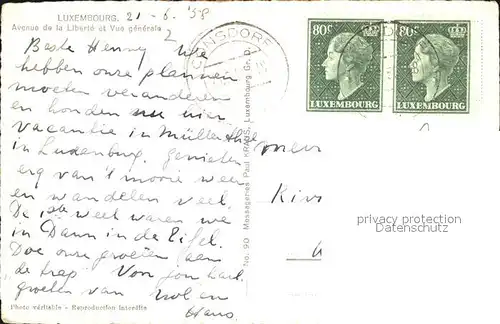 LUXEMBOURG. 21-6.'58
Avenue de la Liberté et Vue générale
Beste Henny We
hebben onze plannen
moeten veranderen
en houden nu hier
vacantie in Müllerthal
in Luxenburg. Genieten
erg van 't mooie weer
en wandelen veel.
De 1ste week waren we
in Daun in de Eifel.
Doe onze groeten aan
de
groeten van
Hans
Photo véritable - Reproduction interdite
No. 90 Messageries Paul KRAUS, Luxembourg Gr. D.
CONSDORF
80c 80c
LUXEMBOURG LUXEMBOURG
privacy protection
Datenschutz